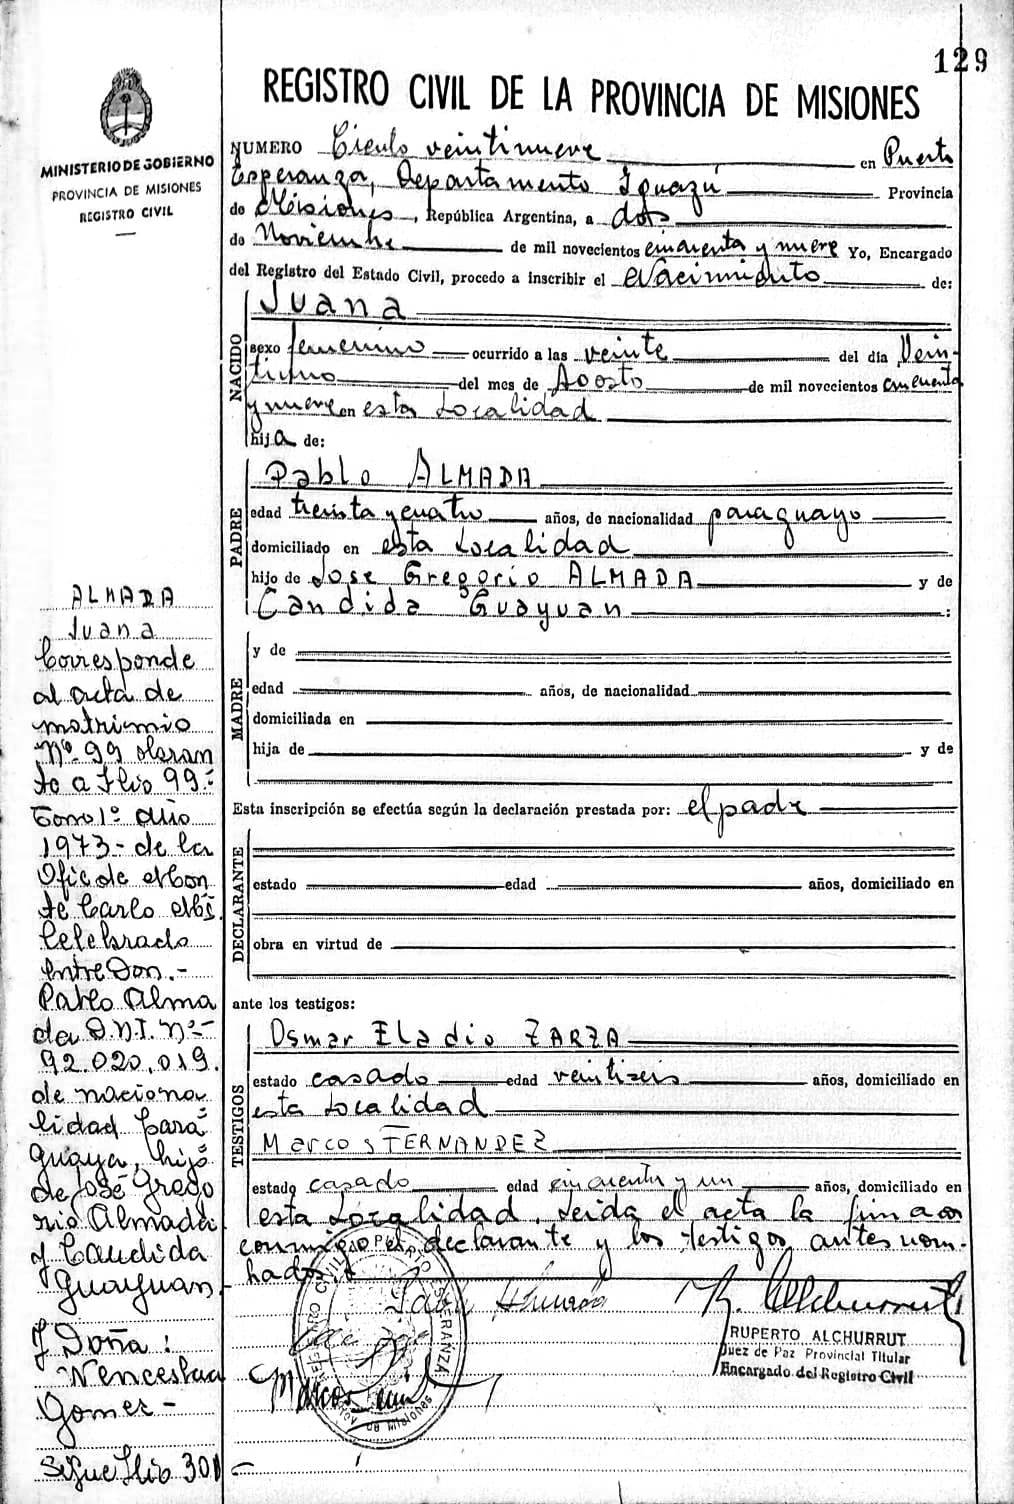 129
REGISTRO CIVIL DE LA PROVINCIA DE MISIONES
MINISTERIO DE GOBIERNO
PROVINCIA DE MISIONES
REGISTRO CIVIL
NUMERO Ciento veintinueve en Puerto
Esperanza, Departamento Iguazú Provincia
de Misiones, República Argentina, a dos
de Noviembre de mil novecientos cincuenta y nueve Yo, Encargado
del Registro del Estado Civil, procedo a inscribir el Nacimiento de:
NACIDO
Juana
sexo femenino ocurrido a las veinte del día Vein-
tiuno del mes de Agosto de mil novecientos cincuenta
y nueve en esta Localidad
hija de:
PADRE
Pablo ALMADA
edad treinta y cuatro años, de nacionalidad paraguayo
domiciliado en esta Localidad
hijo de Jose Gregorio ALMADA y de
Candida Guayuan :
MADRE
y de
edad años, de nacionalidad
domiciliada en
hija de y de
Esta inscripción se efectúa según la declaración prestada por: el padre
DECLARANTE
estado edad años, domiciliado en
obra en virtud de
ante los testigos:
TESTIGOS
Osmar Eladio ZARZA
estado casado edad veintiseis años, domiciliado en
esta Localidad
Marcos FERNANDEZ
estado casado edad cincuenta y un años, domiciliado en
esta Localidad. Leida el acta la firman
conmigo el declarante y los testigos antes nom-
brados
RUPERTO ALCHURRUT
Juez de Paz Provincial Titular
Encargado del Registro Civil
ALMADA
Juana
Corresponde
al acta de
matrimonio
Nº 99 obran
te a flio 99:
Tomo 1º año
1973- de la
Ofic de Mon
te Carlo Mis
Celebrado
entre Don.-
Pablo Alma
da D.N.I. Nº-
92.020.019.
de naciona
lidad Para
guaya, hijo
de José Grego
rio Almada
y Candida
Guayuan.
y Doña:
Wenceslaa
Gomez-
Sigue flio 301